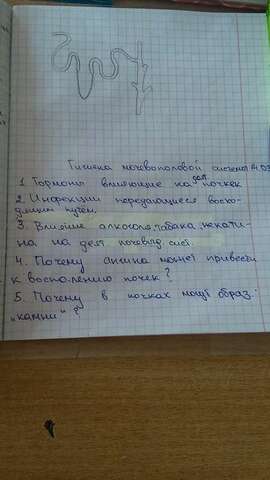 Гигиена мочевополовой системы
1. Гормоны влияющие на деят почкек
2. Инфекции передающиеся восхо-
дящим путём.
3. Влияние алкоголя, табака, никати-
на на деят. мочевыд. сист.
4. Почему ангина может привести
к воспалению почек?
5. Почему в почках могут образ.
"камни"?